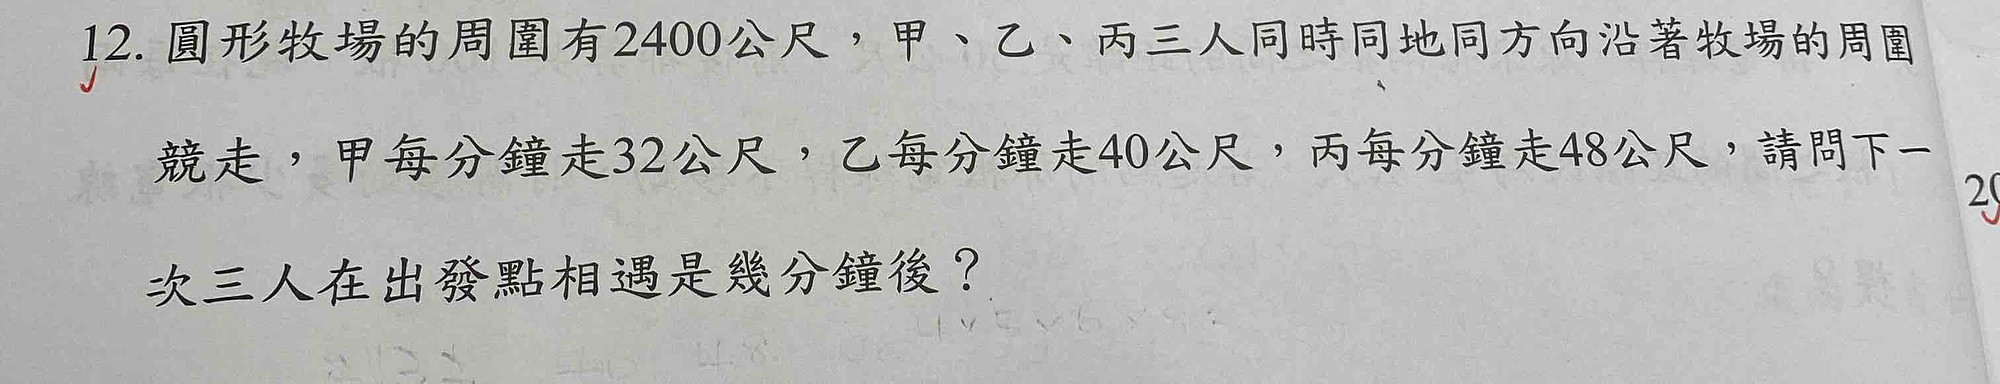 12. 圓形牧場的周圍有2400公尺，甲、乙、丙三人同時同地同方向沿著牧場的周圍
競走，甲每分鐘走32公尺，乙每分鐘走40公尺，丙每分鐘走48公尺，請問下一
次三人在出發點相遇是幾分鐘後？